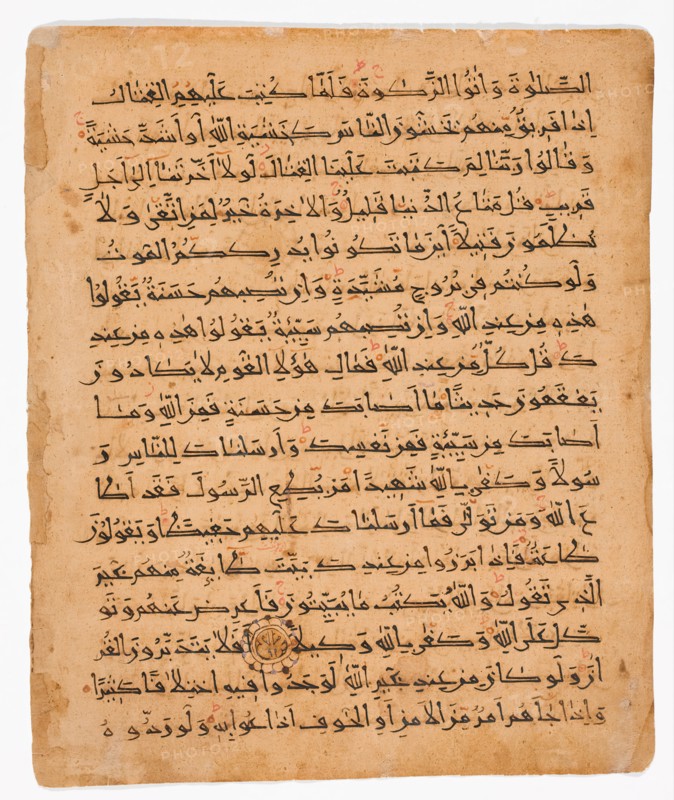 الصلوة واتوا الزكوة فلما كتب عليهم القتال
اذا فريق منهم يخشون الناس كخشية الله او اشد خشية
وقالوا ربنا لم كتبت علينا القتال لولا اخرتنا الى اجل
قريب قل متاع الدنيا قليل والاخرة خير لمن اتقى ولا
تظلمون فتيلا اين ما تكونوا يدرككم الموت
ولو كنتم في بروج مشيدة وان تصبهم حسنة يقولوا
هذه من عند الله وان تصبهم سيئة يقولوا هذه من عند
ك قل كل من عند الله فمال هؤلا القوم لا يكادون
يفقهون حديثا ما اصابك من حسنة فمن الله وما
اصابك من سيئة فمن نفسك وارسلناك للناس ر
سولا وكفى بالله شهيدا من يطع الرسول فقد اطا
ع الله ومن تولى فما ارسلناك عليهم حفيظا ويقولون
طاعة فاذا برزوا من عندك بيت طايفة منهم غير
الذي تقول والله يكتب ما يبيتون فاعرض عنهم وتو
كل على الله وكفى بالله وكيلا افلا يتدبرون القر
ان ولو كان من عند غير الله لوجدوا فيه اختلافا كثيرا
واذا جاهم امر من الامن او الخوف اذاعوا به ولو ردوه